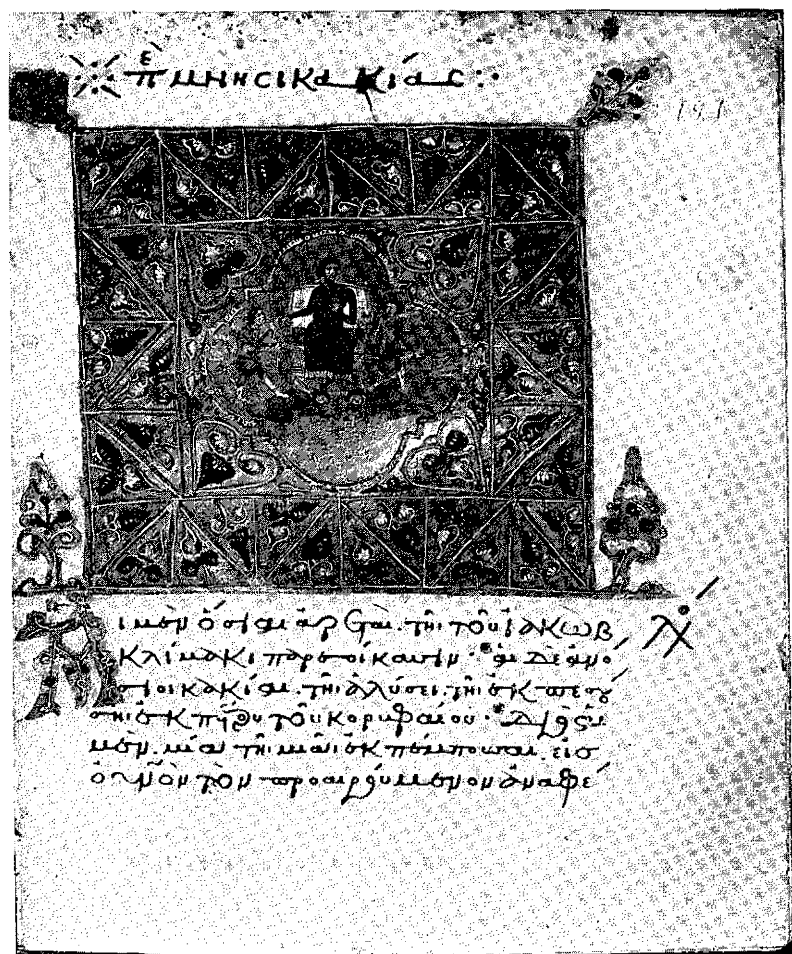 π̅ε̅ μνησικακίας :·
191
Αἱ μὲν ὅσιαι ἀρεταὶ. τῆι τοῦ ἰακὼβ
κλίμακι παρεοίκασιν· αἱ δὲ ἀνό
σιοι κακίαι. τῆι ἁλύσει. τῆι ἐκπεσού
σηι ἐκ πέτρου τοῦ κορυφαίου· Διὸ αἱ
μὲν. μία τῆι μιᾶι ἐκπέμπουσαι. εἰσ
οὐνὸν τὸν προαιρούμενον ἀναφέ